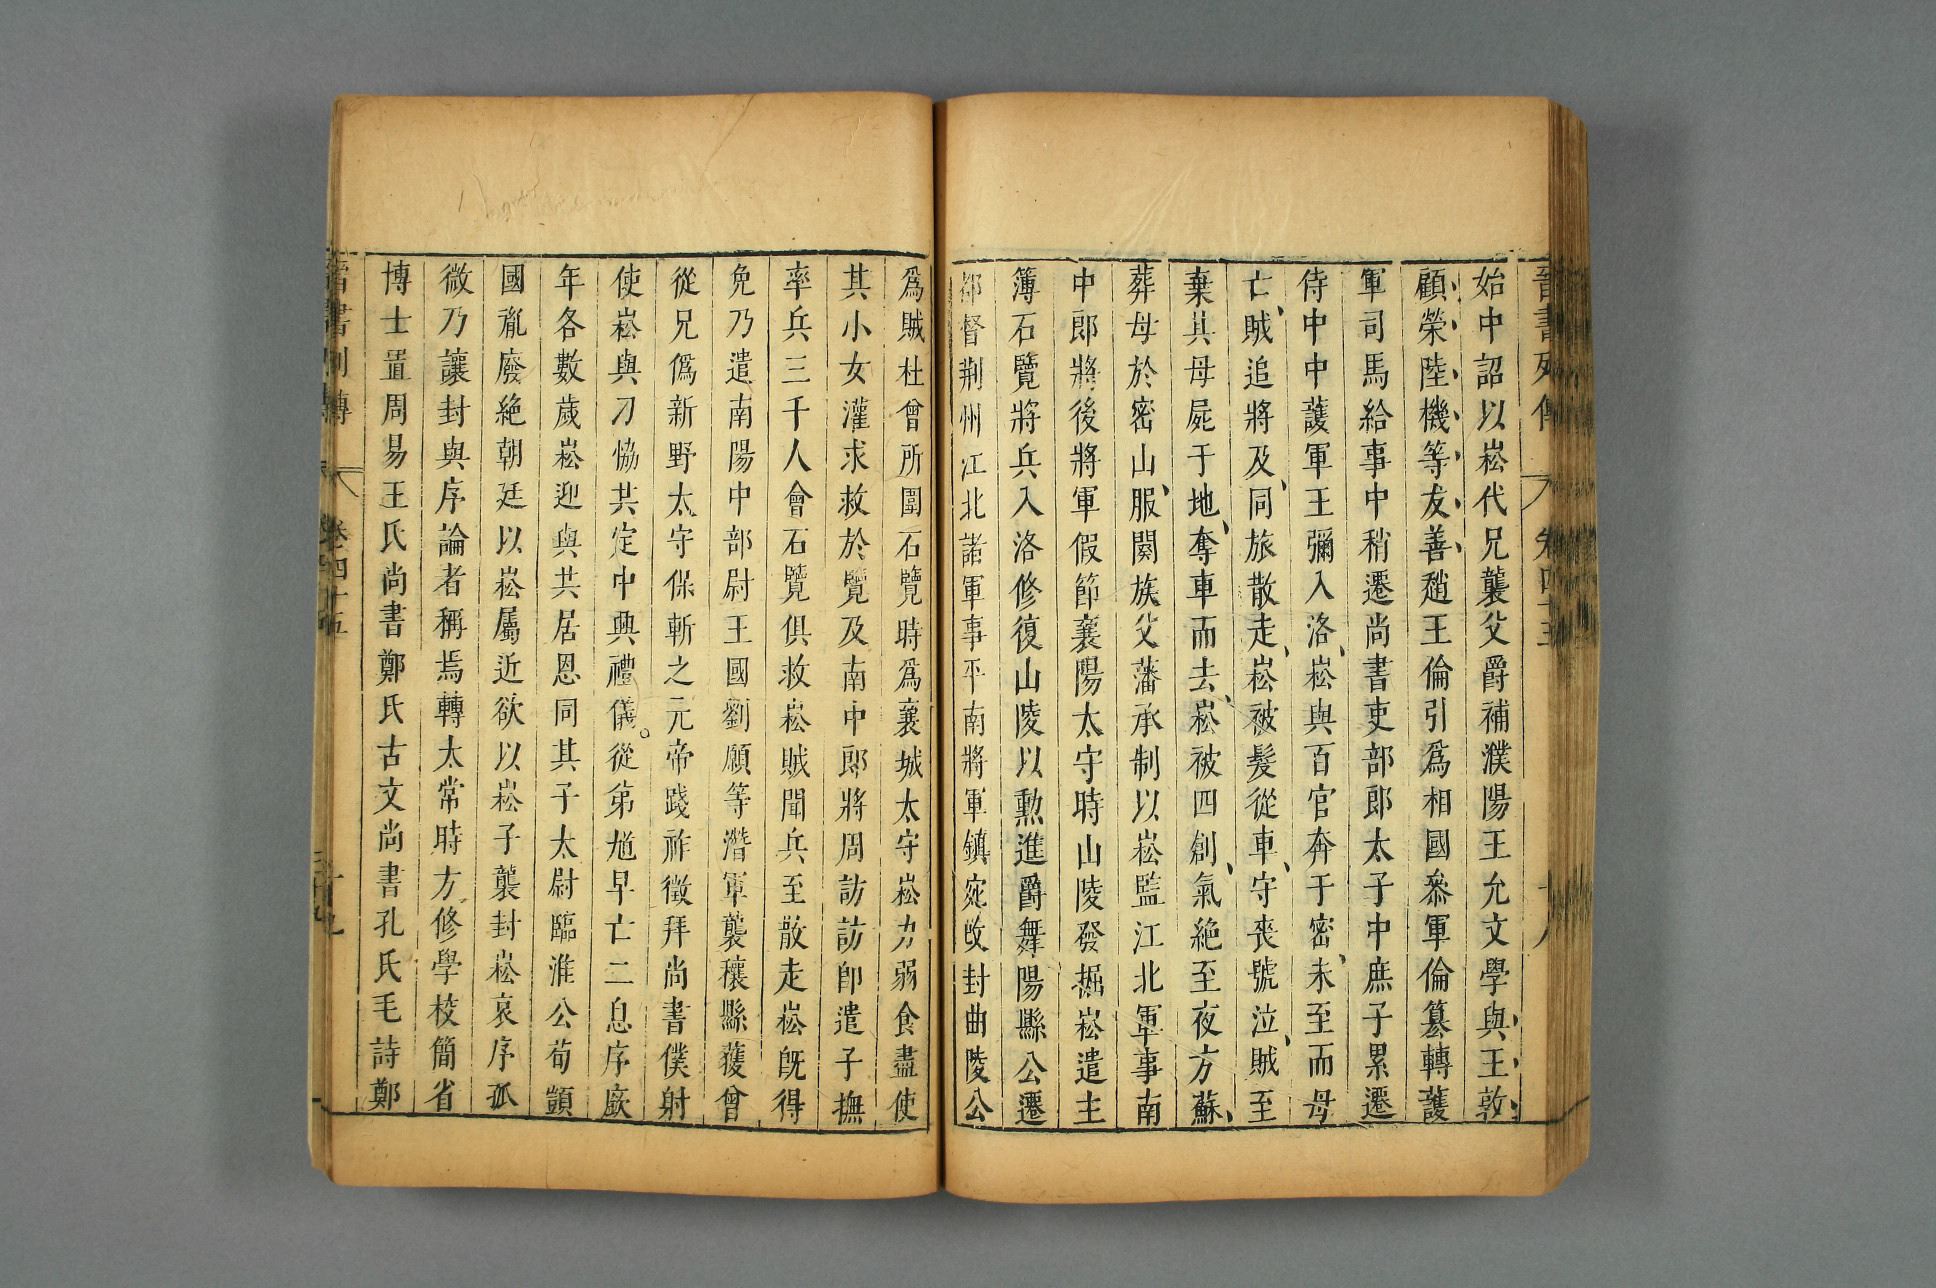 晉書列傳 卷四十五 十八
始中詔以崧代兄襲父爵補濮陽王允文學與王敦
顧榮陸機等友善趙王倫引爲相國叅軍倫篡轉護
軍司馬給事中稍遷尚書吏部郎太子中庶子累遷
侍中中護軍王彌入洛崧與百官奔于密未至而母
亡賊追將及同旅散走崧被髮從車守喪號泣賊至
棄其母屍于地奪車而去崧被四創氣絶至夜方蘇
葬母於密山服闋族父藩承制以崧監江北軍事南
中郎將後將軍假節襄陽太守時山陵發掘崧遣主
簿石覽將兵入洛修復山陵以勲進爵舞陽縣公遷
都督荆州江北諸軍事平南將軍鎮宛改封曲陵公
爲賊杜曾所圍石覽時爲襄城太守崧力弱食盡使
其小女灌求救於覽及南中郎將周訪訪即遣子撫
率兵三千人會石覽俱救崧賊聞兵至散走崧既得
免乃遣南陽中部尉王國劉願等潛軍襲穰縣獲曾
從兄僞新野太守保斬之元帝踐祚徵拜尚書僕射
使崧與刁協共定中興禮儀。從弟馗早亡二息序廞
年各數歲崧迎與共居恩同其子太尉臨淮公荀顗
國胤廢絶朝廷以崧屬近欲以崧子襲封崧哀序孤
微乃讓封與序論者稱焉轉太常時方修學校簡省
博士置周易王氏尚書鄭氏古文尚書孔氏毛詩鄭
晉書列傳 卷四十五 十九